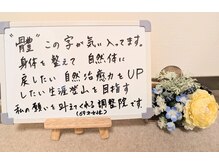 "體" この字が気に入ってます。
身体を整えて 自然体に
戻したい 自然治癒力をUP
したい 生涯登山を目指す
私の願いを叶えてくれる 調整院です